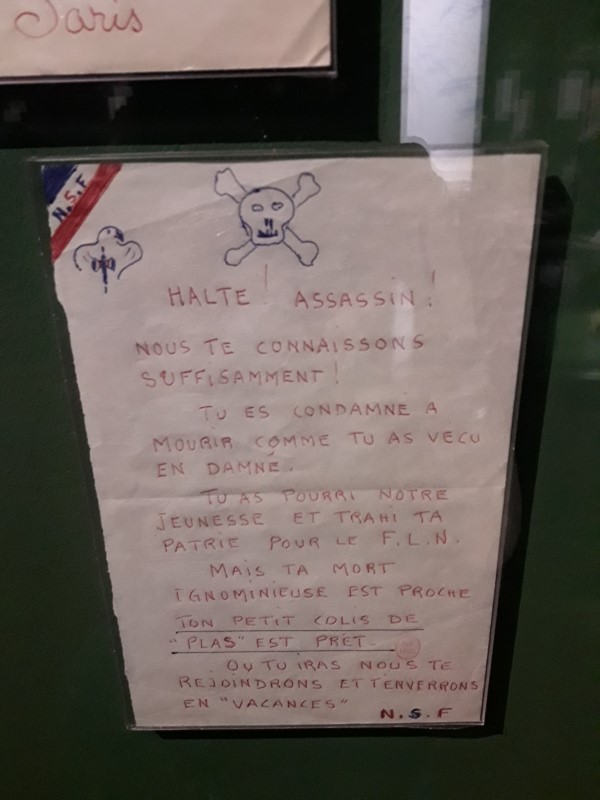 Paris
N.S.F
HALTE ! ASSASSIN !
NOUS TE CONNAISSONS
SUFFISAMMENT !
TU ES CONDAMNE A
MOURIR COMME TU AS VECU
EN DAMNÉ.
TU AS POURRI NOTRE
JEUNESSE ET TRAHI TA
PATRIE POUR LE F.L.N.
MAIS TA MORT
IGNOMINIEUSE EST PROCHE
TON PETIT COLIS DE
"PLAS" EST PRET
OU TU IRAS NOUS TE
REJOINDRONS ET T'ENVERRONS
EN "VACANCES"
N.S.F